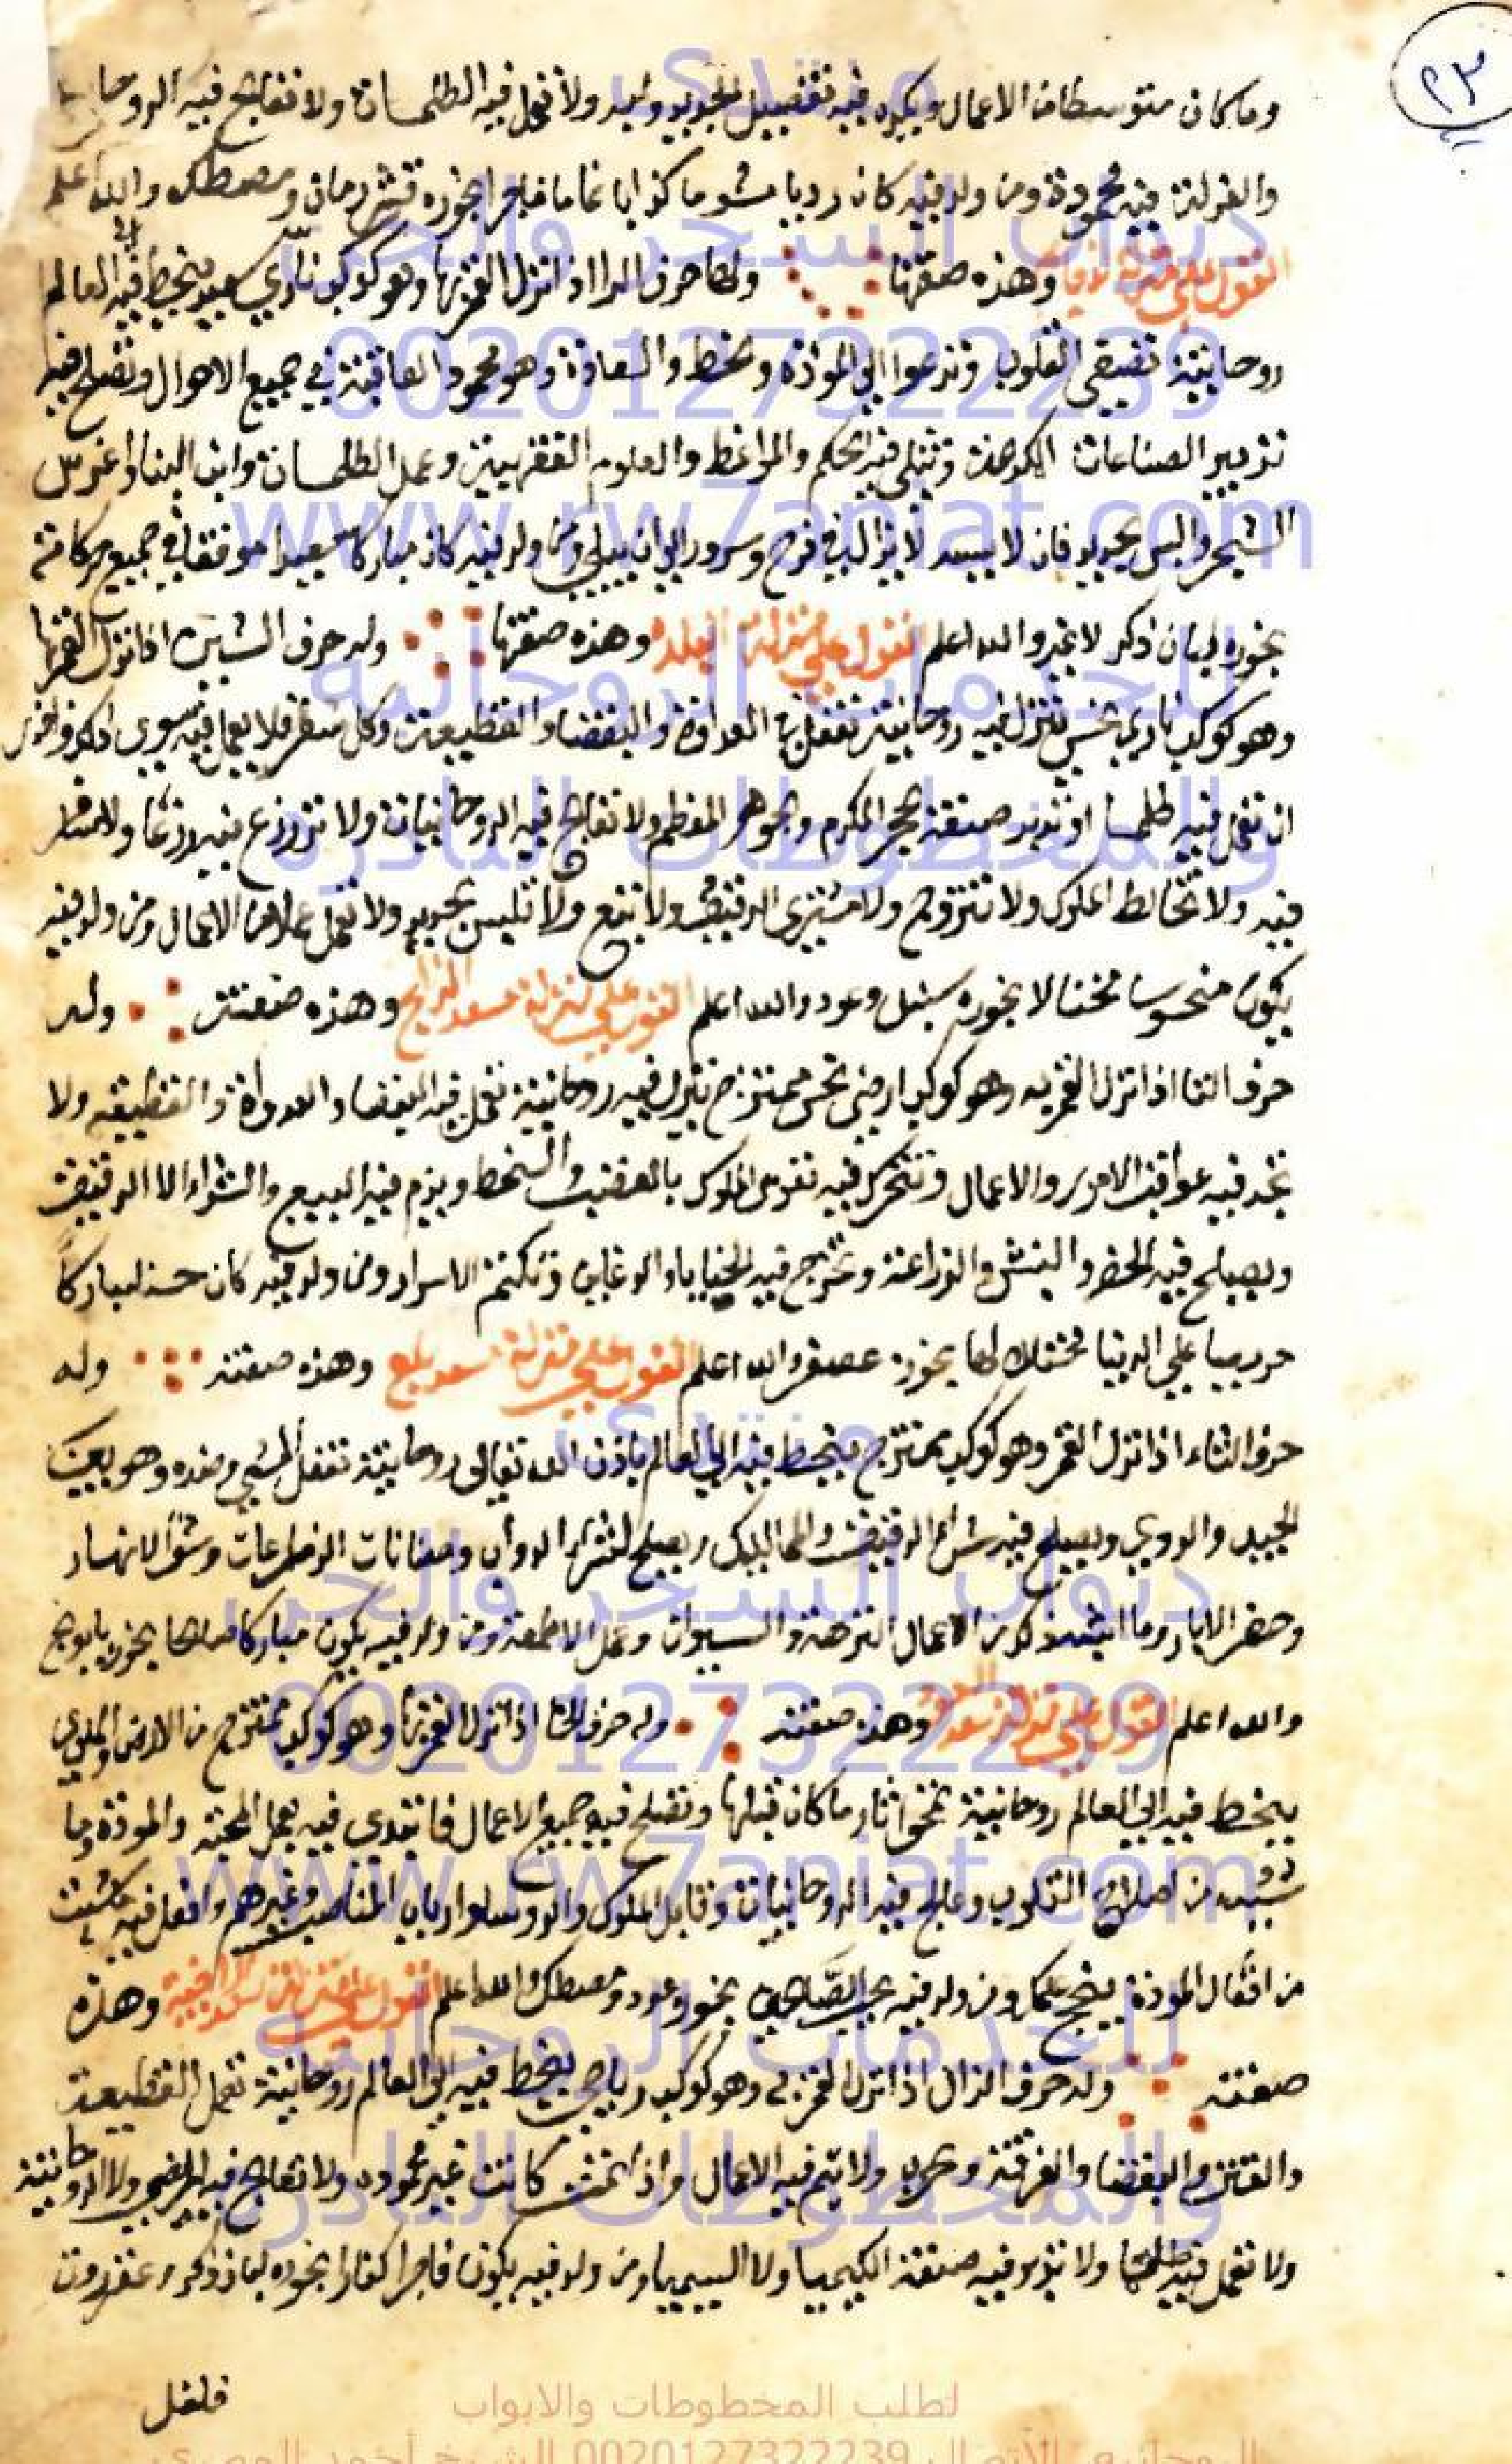 ٢٣
وما كان متوسطا من الاعمال ويكره فيه تفصيل الجديد ولبسه ولا تعمل فيه الطلسمات ولا تعالج فيه الروحا
والعزلة فيه محمودة ومن ولد فيه كان رديا مشوما كذابا نماما فاجرا بخوره قشر رمان ومصطكى والله اعلم
القول على منزلة وهذه صفتها ولها حرف الرا اذا نزل القمر بها وهو كوكب ناري سعيد ينحط فيه الى العالم
روحانية تفيق القلوب وتدعوا الى المودة والسعادة وهو محمود العاقبة في جميع الاحوال وتصلح فيه
تدبير الصناعات وتتلى فيه الحكم والمواعظ والعلوم وعمل الطلسمات وابن البنا واغرس
الشجر والبس الجديد فان لابسه لا يزال في فرح وسرور الى ان يبلى ومن ولد فيه كان مباركا سعيدا موفقا في جميع حركاته
بخوره لبان ذكر لا غير والله اعلم القول على منزلة البلدة وهذه صفتها وله حرف الشين اذا نزل القمر بها
وهو كوكب ناري نحس تنزل فيه روحانية تفعل العداوة والبغضا والقطيعة وكل فلا يعمل فيه سوى ذلك
ان تعمل فيه طلسما او تدبر صنعة الحجر المكرم والجوهر المعظم ولا تعالج فيه الروحانيات ولا تزرع فيه زرعا ولا تسافر
فيه ولا تخالط الملوك ولا تتزوج ولا تشتري الرقيق ولا تبع ولا تلبس الجديد ولا تعمل عملا من الاعمال ومن ولد فيه
يكون منحوسا بخوره سنبل وعود والله اعلم القول على منزلة سعد الذابح وهذه صفته وله
حرف التا اذا نزل القمر به وهو كوكب ارضي نحس ممتزج ينزل فيه روحانية تعمل فيه البغضا والعداوة والقطيعة ولا
تحمد فيه عواقب الامور والاعمال وتتحرك فيه نفوس الملوك بالغضب والسخط ويذم فيه البيع والشراء الا الرقيق
ويصلح فيه الحفر والنبش والزراعة وتخرج فيه الخبايا وتكتم الاسرار ومن ولد فيه كان حسنا مباركا
حريصا على الدنيا بخوره عصفر والله اعلم القول على منزلة سعد بلع وهذه صفته وله
حرف الثاء اذا نزل القمر وهو كوكب ممتزج ينحط فيه الى العالم باذن الله تعالى روحانية تفعل الشي وضده وهو بين
الجيد والردي ويصلح فيه شراء الرقيق والمماليك ويصلح لشراء الدواب وشق الانهار
وحفر الابار وما اشبه ذلك من الاعمال وعمل الاطعمة ومن ولد فيه يكون مباركا صالحا بخوره بابونج
والله اعلم القول على منزلة سعد السعود وهذه صفته وله حرف الخا اذا نزل القمر بها وهو كوكب ممتزج من الارض
ينحط فيه الى العالم روحانية تمحق اثار ما كان قبلها وتصلح فيه جميع الاعمال فابتدي فيه بعمل المحبة والمودة وما
شبه من اصلاح القلوب وعالج فيه الروحانيات وقابل الملوك والروسا وارباب المناصب وغيرهم وافعل فيه ما شئت
من افعال المودة ينجح عملك ومن ولد فيه يحب الصالحين بخوره عود ومصطكى والله اعلم القول على منزلة سعد الاخبية وهذه
صفته وله حرف الذال اذا نزل القمر به وهو كوكب رياحي ينحط فيه الى العالم روحانية تعمل القطيعة
والبغضا والفرقة ولا تتم فيه الاعمال واذا تمت كانت غير محموده ولا تعالج فيه المرضى ولا الروحانية
ولا تعمل فيه طلسما ولا تدبر فيه صنعة الكيميا ولا السيميا ومن ولد فيه يكون فاجرا كفارا بخوره لبان ذكر
فلفل
منتدى
ديوان السحر والجن
00201273222239
www.rw7aniat.com
للخدمات الروحانية
والمخطوطات النادرة
منتدى
ديوان السحر والجن
00201273222239
www.rw7aniat.com
للخدمات الروحانية
والمخطوطات النادرة
لطلب المخطوطات والابواب
الروحانيه الاتصال 00201273222239 الشيخ احمد المصري